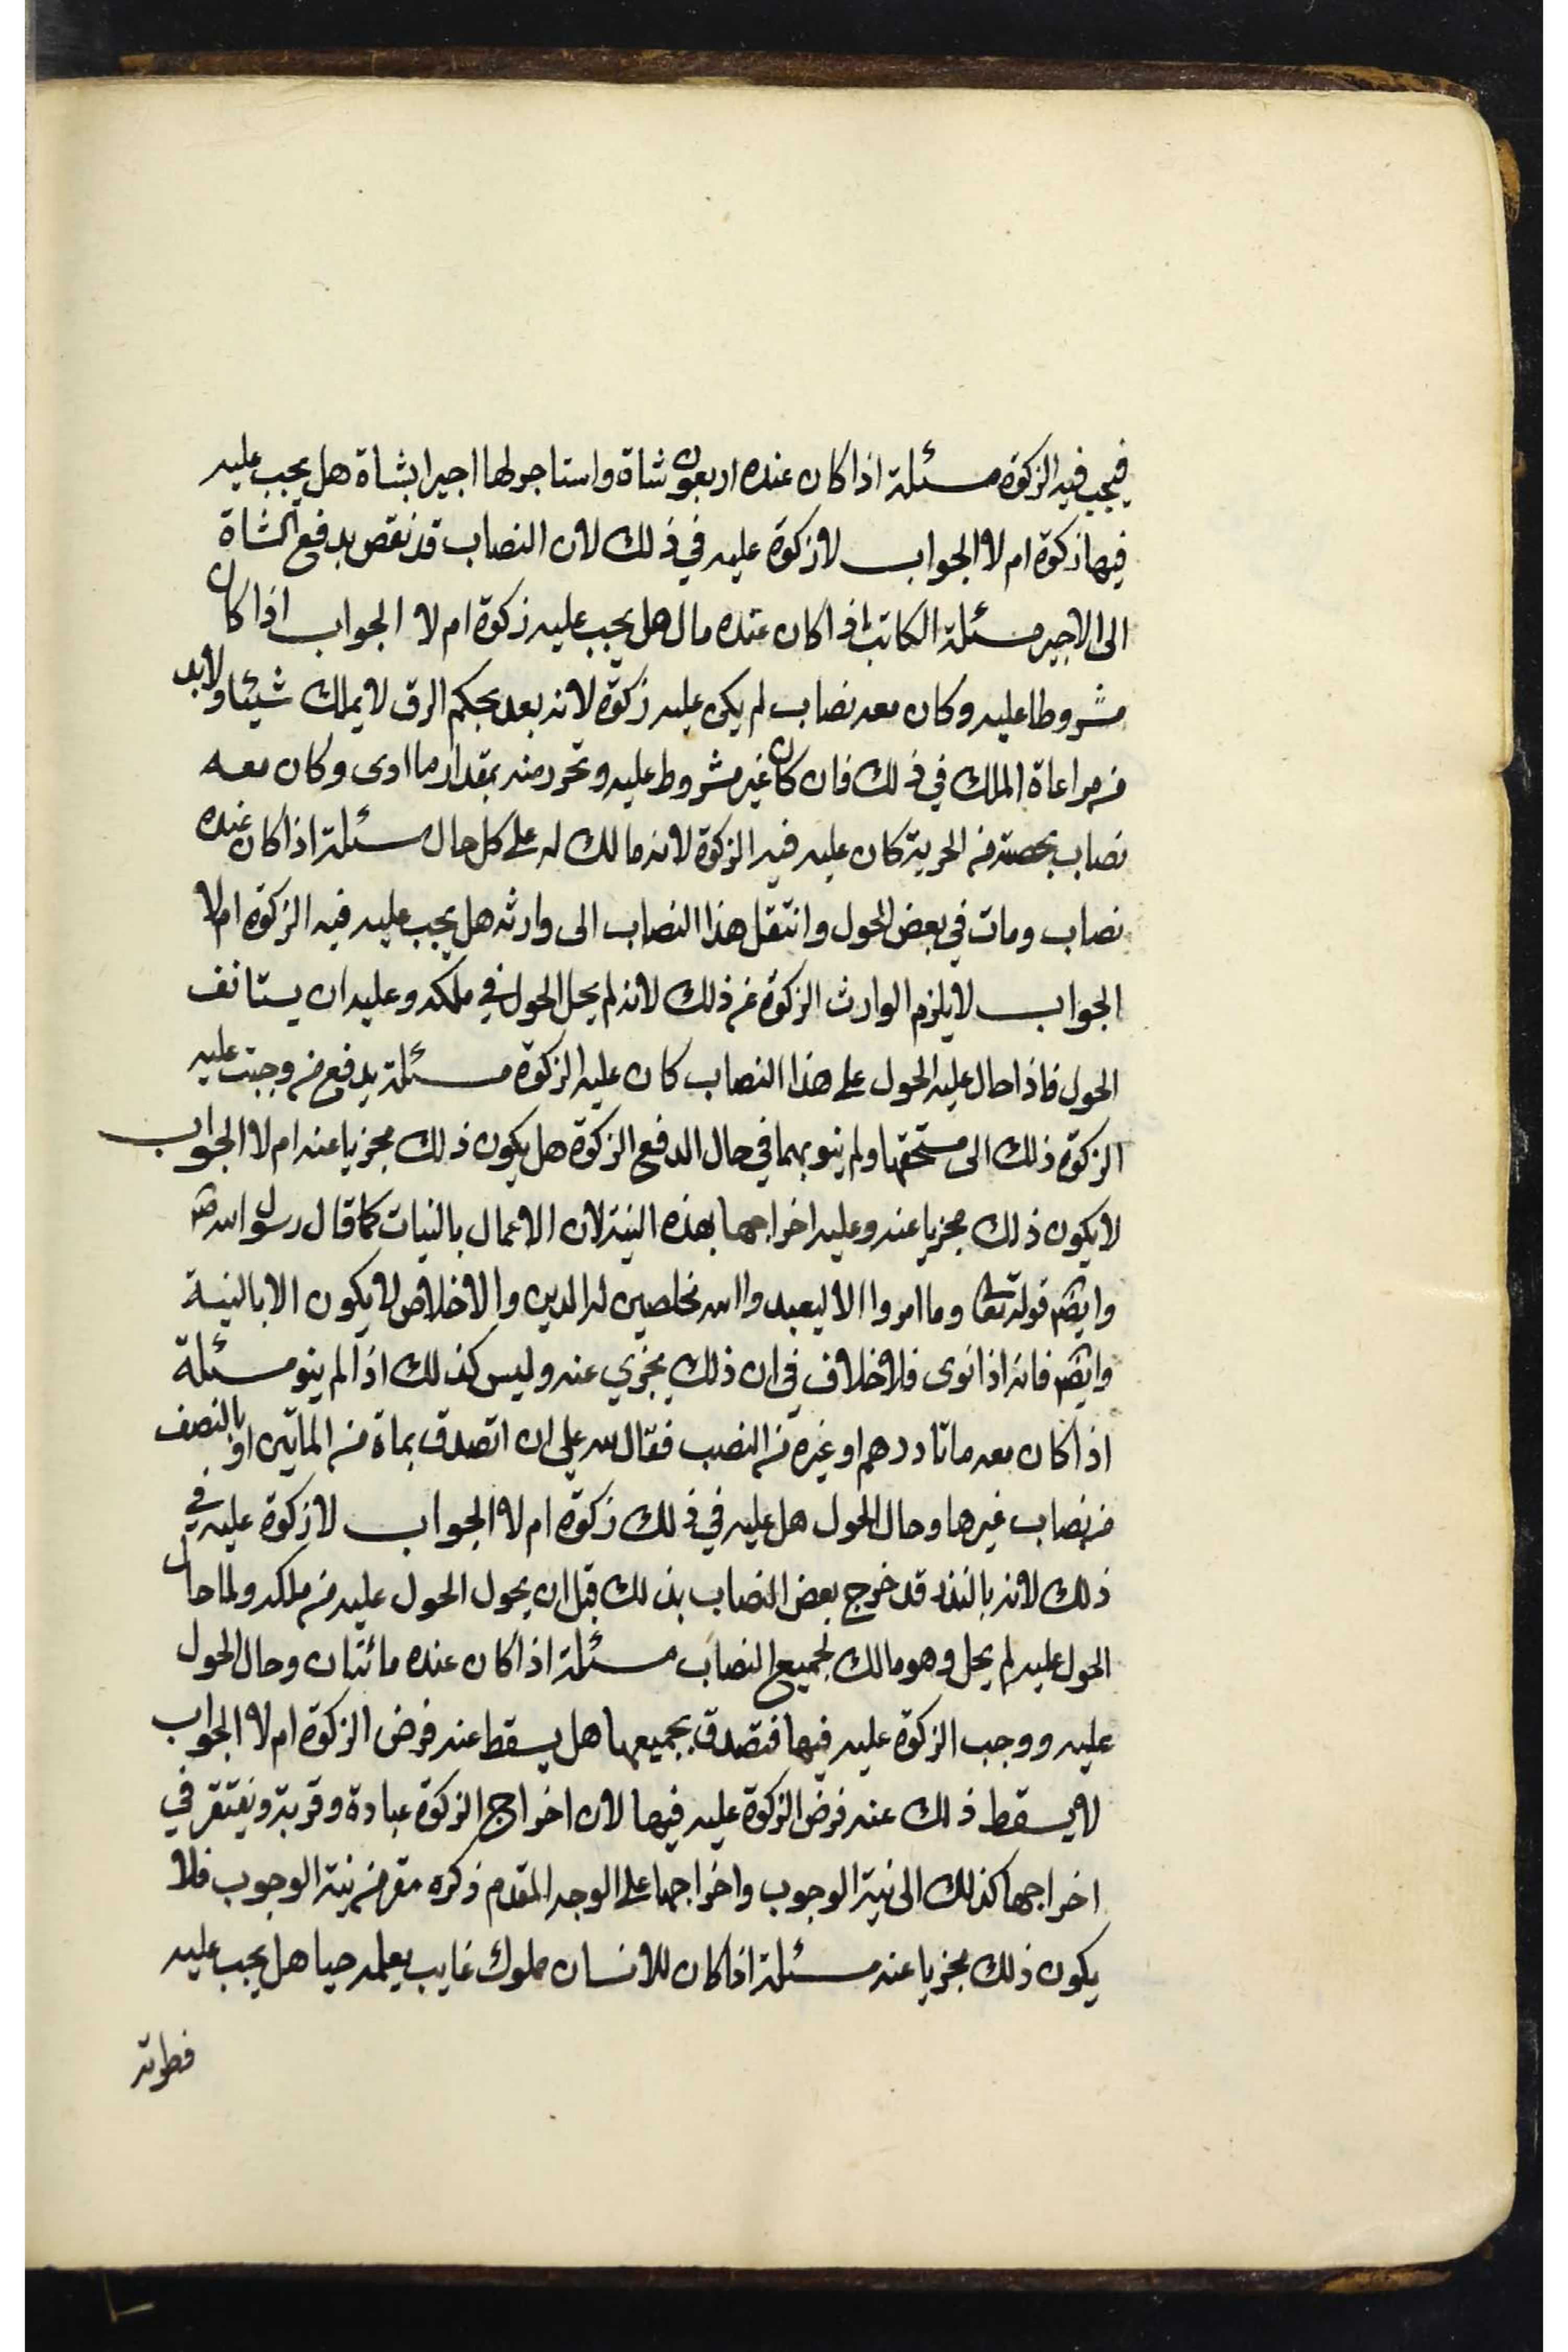 فيجب فيه الزكوة مسئلة اذا كان عنده اربعون شاة واستاجر لها اجيرا بشاة هل يجب عليه
فيها زكوة ام لا الجواب لا زكوة عليه في ذلك لان النصاب قد نقص بدفع الشاة
الى الاجير مسئلة الكاتب اذا كان عنده مال هل يجب عليه زكوة ام لا الجواب اذا كان
مشروطا عليه وكان معه نصاب لم يكن عليه زكوة لانه بعد بحكم الرق لا يملك شيئا ولا بد
من مراعاة الملك في ذلك فان كان غير مشروط عليه وتحرر منه بمقدار ما ادى وكان معه
نصاب بحصته من الحرية كان عليه فيه الزكوة لانه مالك له على كل حال مسئلة اذا كان عنده
نصاب ومات في بعض الحول وانتقل هذا النصاب الى وارثه هل يجب عليه فيه الزكوة ام لا
الجواب لا يلزم الوارث الزكوة عن ذلك لانه لم يحل الحول في ملكه وعليه ان يستانف
الحول فاذا حال عليه الحول على هذا النصاب كان عليه الزكوة مسئلة يدفع من وجبت عليه
الزكوة ذلك الى مستحقها ولم ينو بهما في حال الدفع الزكوة هل يكون ذلك مجزيا عنه ام لا الجواب
لا يكون ذلك مجزيا عنه وعليه اخراجها بهذه النية لان الاعمال بالنيات كما قال رسول الله ص
وايضا قوله تعالى وما امروا الا ليعبدوا الله مخلصين له الدين والاخلاص لا يكون الا بالنية
وايضا فانه اذا نوى فلا خلاف في ان ذلك يجزي عنه وليس كذلك اذا لم ينو مسئلة
اذا كان معه ماتا درهم او غيره من النصب فقال لله علي ان اتصدق بماة من الماتين او بالنصف
من نصاب غيرها وحال الحول هل عليه في ذلك زكوة ام لا الجواب لا زكوة عليه في
ذلك لانه بالنذر قد خرج بعض النصاب بذلك قبل ان يحول الحول عليه من ملكه ولما حال
الحول عليه لم يحل وهو مالك لجميع النصاب مسئلة اذا كان عنده مائتان وحال الحول
عليه ووجب الزكوة عليه فيها فتصدق بجميعها هل يسقط عنه فرض الزكوة ام لا الجواب
لا يسقط ذلك عنه فرض الزكوة عليه فيها لان اخراج الزكوة عبادة وقربة ويفتقر في
اخراجها كذلك الى نية الوجوب واخراجها على الوجه المتقدم ذكره مقر من نية الوجوب فلا
يكون ذلك مجزيا عنه مسئلة اذا كان للانسان مملوك غايب يعلمه حيا هل يجب عليه
فطرته